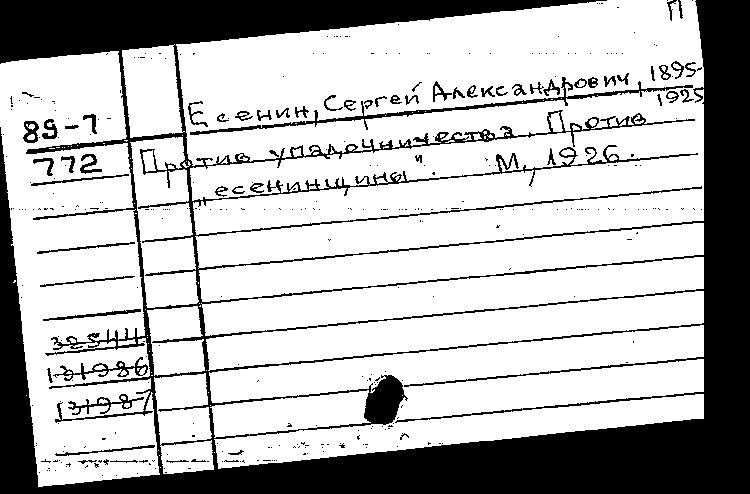 П
Есенин, Сергей Александрович, 1895-
1925
89-7
772
Против упадочничества. Против
„есенинщины". М., 1926.
32544
131986
131987